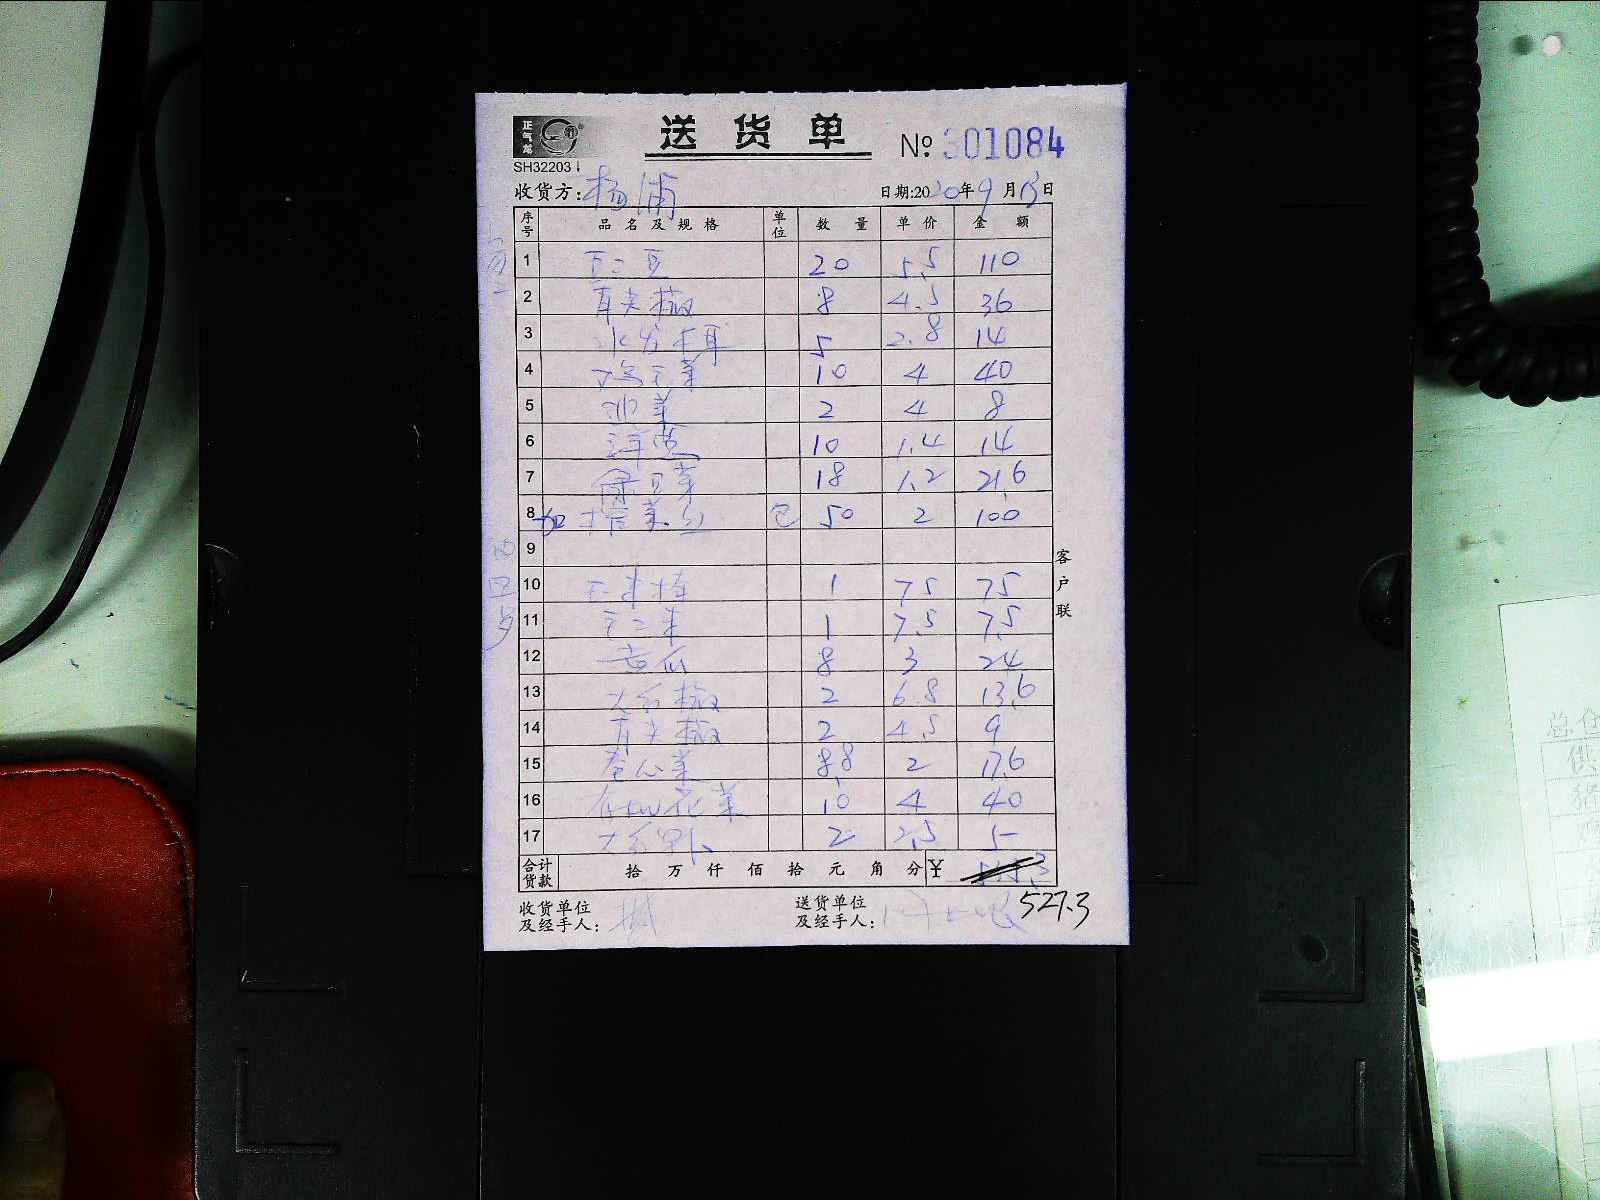 正气苑
送货单 No. 301084
SH32203
收货方: 杨浦 日期:2020年9月13日
序号 品名及规格 单位 数量 单价 金额
1 20 5.5 110
2 青尖椒 8 4.5 36
3 水发木耳 5 2.8 14
4 鸡毛菜 10 4 40
5 2 4 8
6 洋葱 10 1.4 14
7 绿豆芽 18 1.2 21.6
8 加 榨菜 包 50 2 100
9
10 1 75 75
11 1 7.5 7.5
12 黄瓜 8 3 24
13 大红椒 2 6.8 13.6
14 青尖椒 2 4.5 9
15 卷心菜 8.8 2 17.6
16 有机花菜 10 4 40
17 2 2.5 5
合计货款 拾万仟佰拾元角分 ¥
527.3
收货单位及经手人:
送货单位及经手人:
客户联
总仓
供